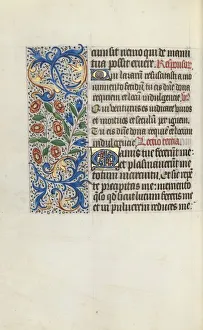 cum sit nemo qui de manu
tua possit eruere. Respons.
Qui lazarum resuscitasti a mo
numento fetidum tu eis domine dona
requiem et locum indulgencie.
Qui venturus es iudicare vivos
et mortuos et seculum per ignem.
Tu eis domine dona requiem et locum
indulgencie. Lectio tercia.
Manus tue fecerunt me
et plasmaverunt me
totum in circuitu, et sic repen
te precipitas me. memento
queso quod sicut lutum feceris me
et in pulverem reduces me.